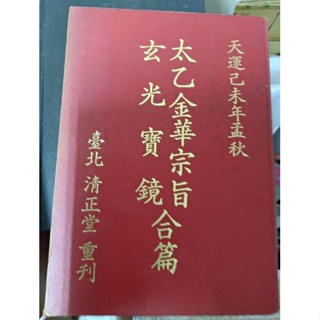 天運己未年孟秋
太乙金華宗旨
玄光寶鏡
合篇
臺北 清正堂 重刊